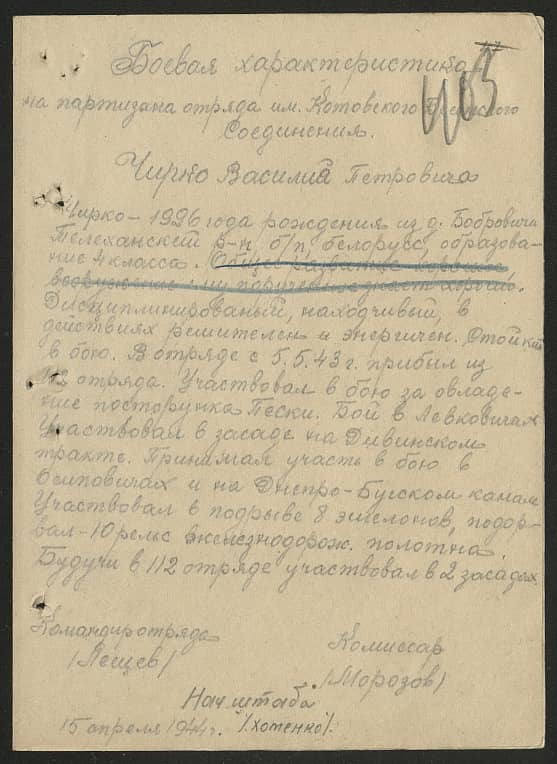 Боевая характеристика
на партизана отряда им. Котовского Брестского
Соединения.
Чирко Василия Петровича
Чирко – 1926 года рождения из д. Бобровичи
Телеханский р-н, б/п, белорусс, образова-
ние 4 класса. Общее развитие хорошее
вооружение ему порученное знает хорошо.
Дисциплинированый, находчивый, в
действиях решителен и энергичен. Стойкий
в бою. В отряде с 5.5.43 г. прибыл из
112 отряда. Участвовал в бою за овладе-
ние посторунка Пески. Бой в Левковичах
Участвовал в засаде на Дивинском
тракте. Принимал участь в бою в
Осиповичах и на Днепро-Бугском канале
Участвовал в подрыве 8 эшелонов, подор-
вал – 10 рельс железнодорож. полотна.
Будучи в 112 отряде участвовал в 2 засадах
Командир отряда
/Лещев/
Комиссар
/Морозов/
Нач. штаба
15 апреля 1944 г. /Хотенко/.